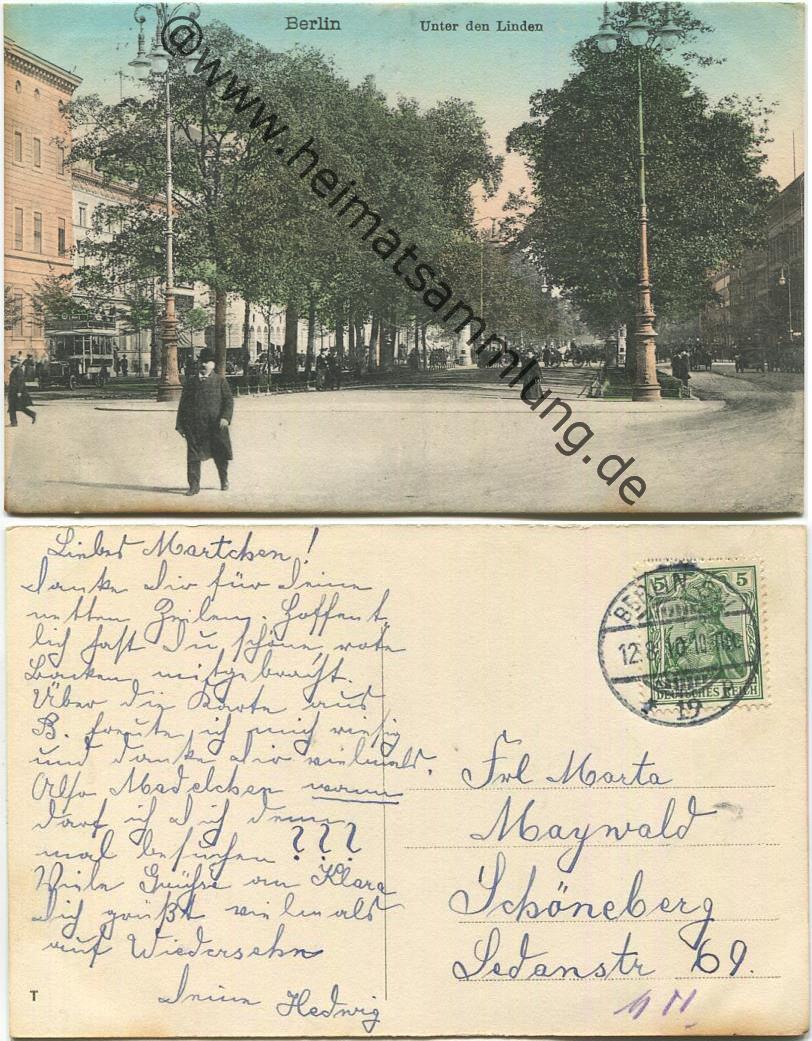 Berlin
Unter den Linden
@www.heimatsammlung.de
Liebes Martchen!
danke dir für deine
netten Zeilen. Hoffent
lich hast Du schöne rote
Backen mitgebracht.
Über die Karte aus
B. freute ich mich riesig
und danke dir vielmals.
Also Madelchen wann
darf ich dich denn
mal besuchen ???
Viele Grüße an Klara
dich grüßt vielmals
auf Wiedersehn
deine Hedwig
T
5 5
DEUTSCHES REICH
BERLIN
12.8.10.10
19
Frl Marta
Maywald
Schöneberg
Sedanstr 69.